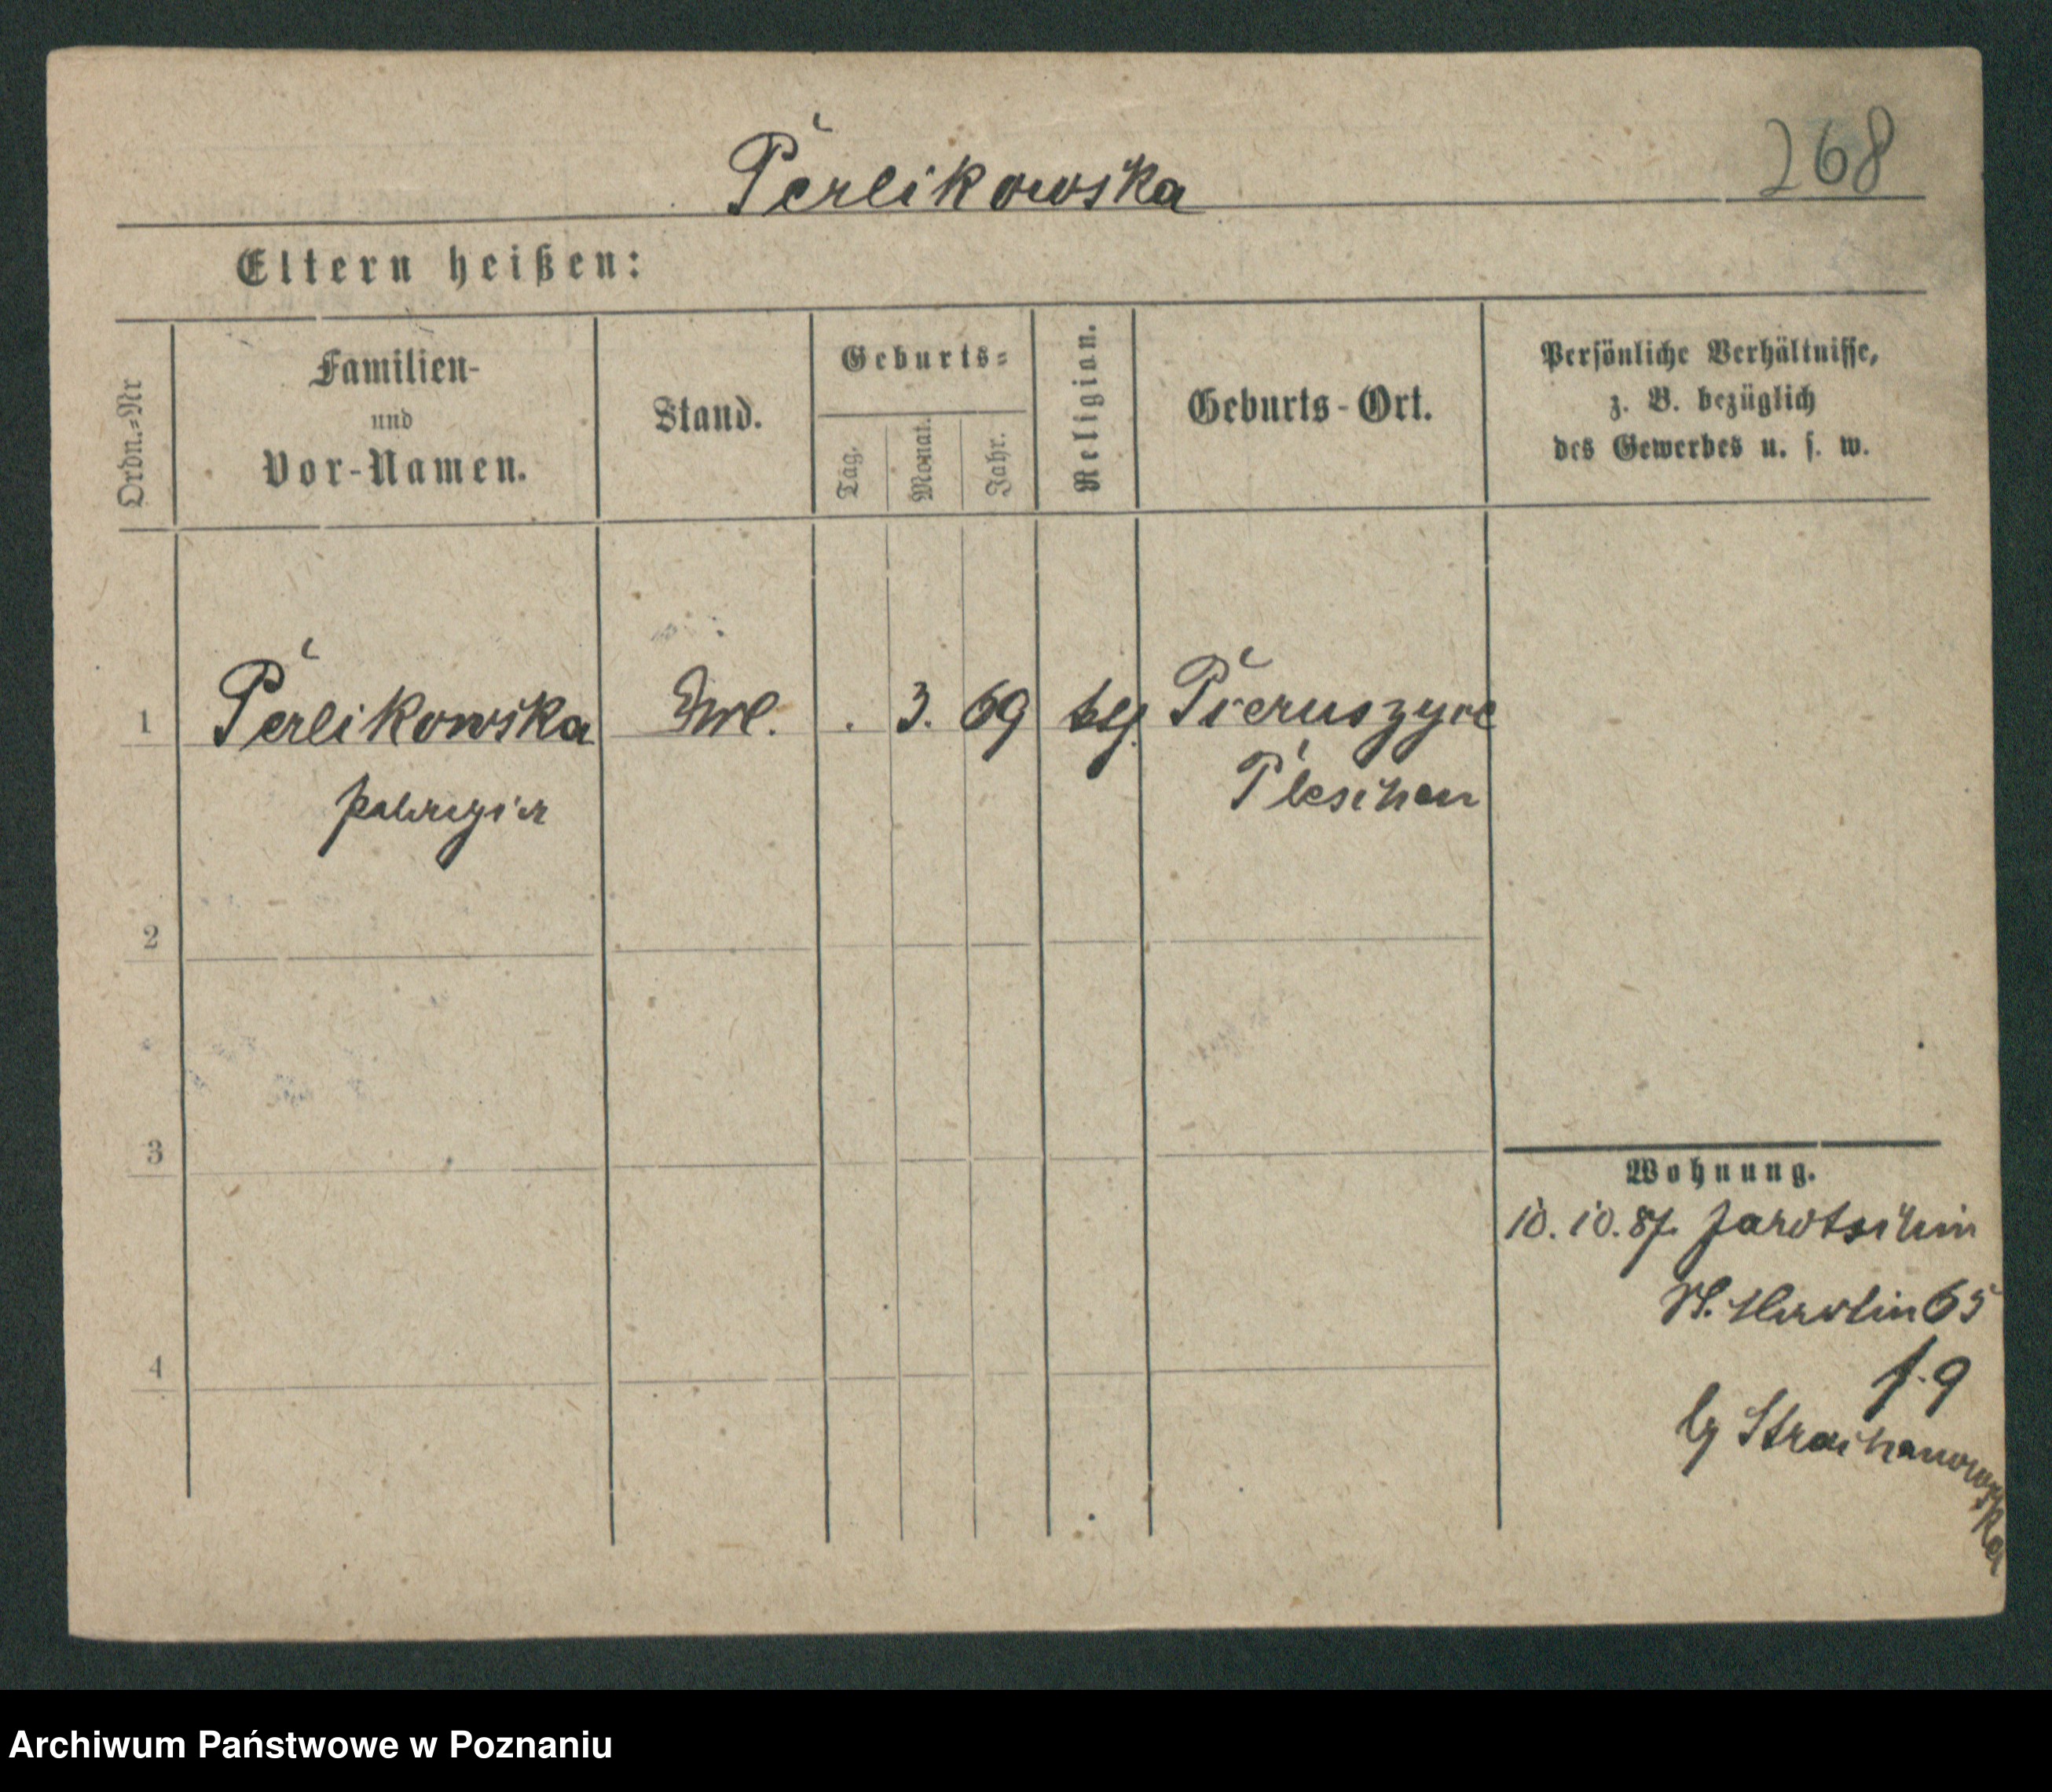 268
Perlikowska
Eltern heißen:
Ordn.=Nr
Familien-
und
Vor-Namen.
Stand.
Geburts=
Tag.
Monat.
Jahr.
Religion.
Geburts-Ort.
Persönliche Verhältnisse,
z. B. bezüglich
des Gewerbes u. s. w.
1
Perlikowska
. 3. 69
Pieruszyce
Pleschen
2
3
4
Wohnung.
10. 10. 87. Jarotschin
St. Martin 65
Strachanowska
Archiwum Państwowe w Poznaniu